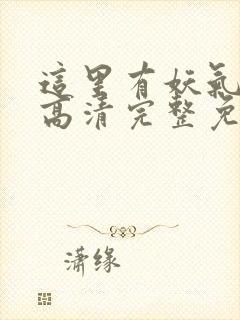 這里有妖氣
高清完整免
潇缘